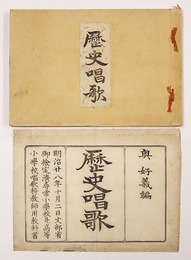 歷史唱歌
奧好義編
歷史唱歌
明治廿八年十月二日文部省
御檢定濟尋常小學校並高等
小學校唱歌科教師用教科書